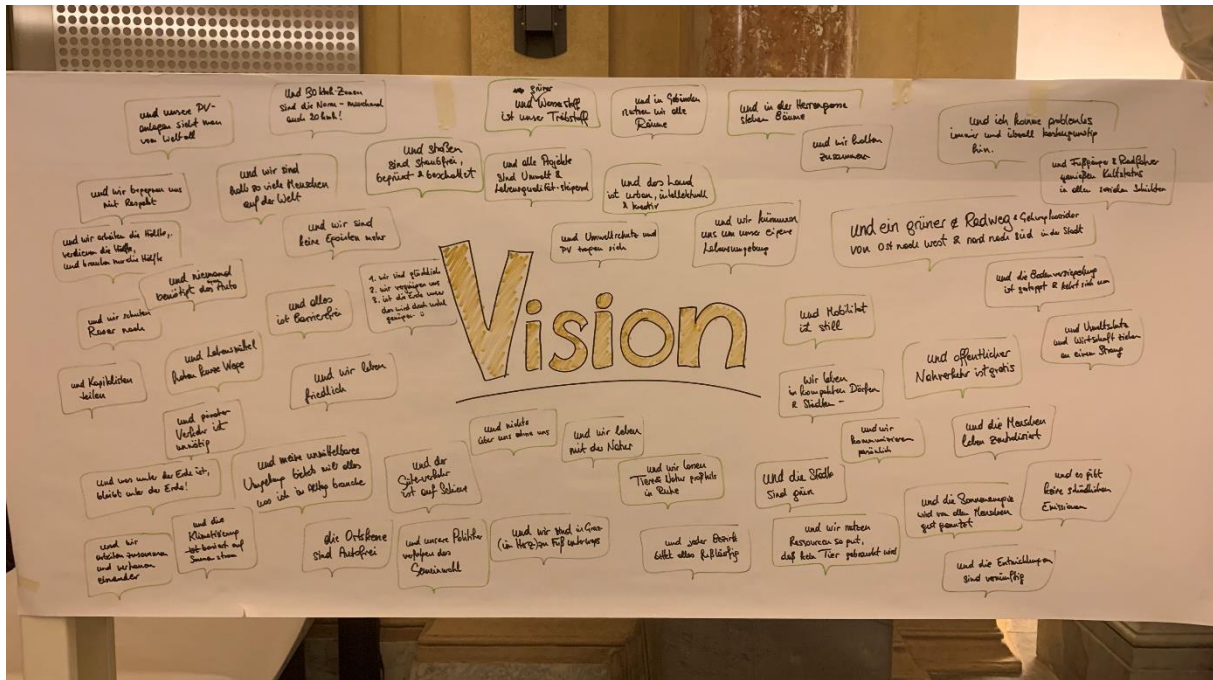 und unsere PV-
anlagen sieht man
vom Weltall
und 30 kmh-Zonen
sind die Norm - manchmal
auch 20 kmh!
grüner
und Wasserstoff
ist unser Treibstoff
und in Gebäuden
nutzen wir alle
Räume
und in der Herrengasse
stehen Bäume
und wir halten
zusammen
und ich komme problemlos
immer und überall kostengünstig
hin.
und Fußgänger & Radfahrer
genießen Kultstatus
in allen sozialen Schichten
und wir begegnen uns
mit Respekt
und wir sind
halb so viele Menschen
auf der Welt
und Straßen
sind staubfrei,
begrünt & beschattet
und alle Projekte
sind Umwelt &
Lebensqualität-steigernd
und das Land
ist urban, intellektuell
& kreativ
und wir arbeiten die Hälfte,
verdienen die Hälfte,
und brauchen nur die Hälfte
und wir sind
keine Egoisten mehr
und Umweltschutz und
PV tragen sich
und wir kümmern
uns um unsere eigene
Lebensumgebung
und ein grüner & Radweg & Gehwege
von Ost nach West & Nord nach Süd in der Stadt
und niemand
benötigt das Auto
1. wir sind glücklich
2. wir vergnügen uns
3. ist die Erde unser
das wird doch wohl
genügen
und die Bodenversiegelung
ist gestoppt & kehrt sich um
und wir schalten
nach
und alles
ist Barrierefrei
Vision
und Mobilität
ist still
und Umweltschutz
und Wirtschaft ziehen
an einem Strang
und Kapitalisten
teilen
und Lebensmittel
haben kurze Wege
und wir leben
friedlich
und öffentlicher
Nahverkehr ist gratis
wir leben
in kompakten Dörfern
& Städten -
und privater
Verkehr ist
unnötig
und nichts
über uns ohne uns
und wir leben
mit der Natur
und wir
kommunizieren
persönlich
und die Menschen
leben zentralisiert
und was unter der Erde ist,
bleibt unter der Erde!
und meine unmittelbare
Umgebung bietet mir alles
was ich im Alltag brauche
und der
Güterverkehr
ist auf Schiene
und wir lassen
Tiere & Natur
in Ruhe
und die Städte
sind grün
und die Sonnenenergie
wird von allen Menschen
gut genutzt
und es gibt
keine schädlichen
Emissionen
und wir
arbeiten zusammen
und vertrauen
einander
und die
Klimatisierung
ist basiert auf
Sonnenstrom
die Ortskerne
sind Autofrei
und unsere Politiker
verfolgen das
Gemeinwohl
und wir sind in Graz
(im Herz) zu Fuß unterwegs
und jeder Bezirk
bittet alles fußläufig
und wir nutzen
Ressourcen so gut,
daß kein Tier gebraucht wird
und die Entwicklungen
sind vernünftig